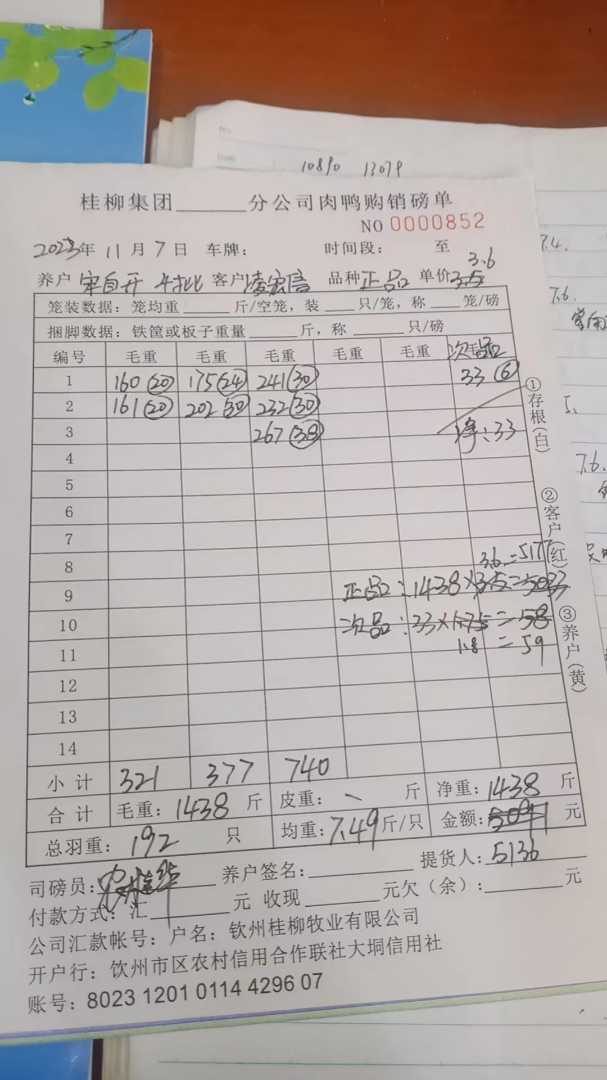 10890 13079
桂柳集团 分公司肉鸭购销磅单
NO 0000852
2023年 11月 7日 车牌： 时间段： 至
3.6
养户 客户 品种 正品 单价 3.5
笼装数据：笼均重 斤/空笼，装 只/笼，称 笼/磅
捆脚数据：铁筐或板子重量 斤，称 只/磅
编号 毛重 毛重 毛重 毛重 毛重 次品
1 160 (20) 175 (24) 241 (30) 33 (6)
2 161 (20) 202 (30) 232 (30)
3 267 (38) 净：33
4
5
6
7
8 3.6 = 5177
9 正品：1438×3.5=5033
10 次品：33×1.75=58
11 1.8 = 59
12
13
14
小计 321 377 740
合计 毛重：1438 斤 皮重： 斤 净重：1438 斤
总羽重：192 只 均重：7.49 斤/只 金额：5091 元
5136
司磅员： 养户签名： 提货人：
付款方式：汇 元 收现 元欠（余）： 元
公司汇款帐号：户名：钦州桂柳牧业有限公司
开户行：钦州市区农村信用合作联社大垌信用社
账号：8023 1201 0114 4296 07
①存根(白)
②客户(红)
③养户(黄)
7.4.
7.6.
7.6.